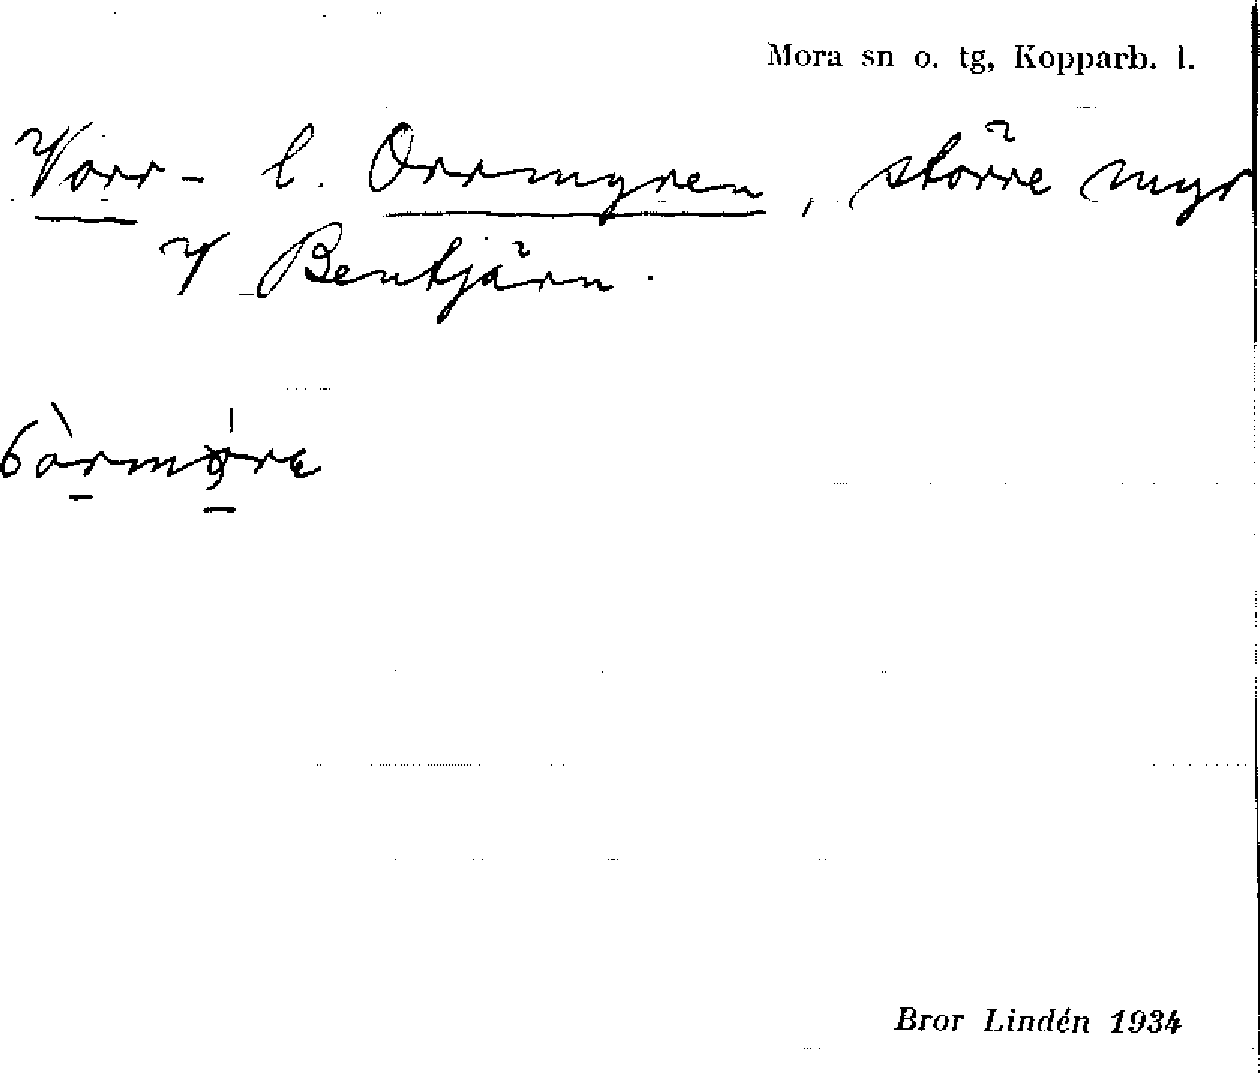 Mora sn o. tg, Kopparb. l.
Vorr- l. Orrmyren, större myr
V Bentjärn.
Bror Lindén 1934